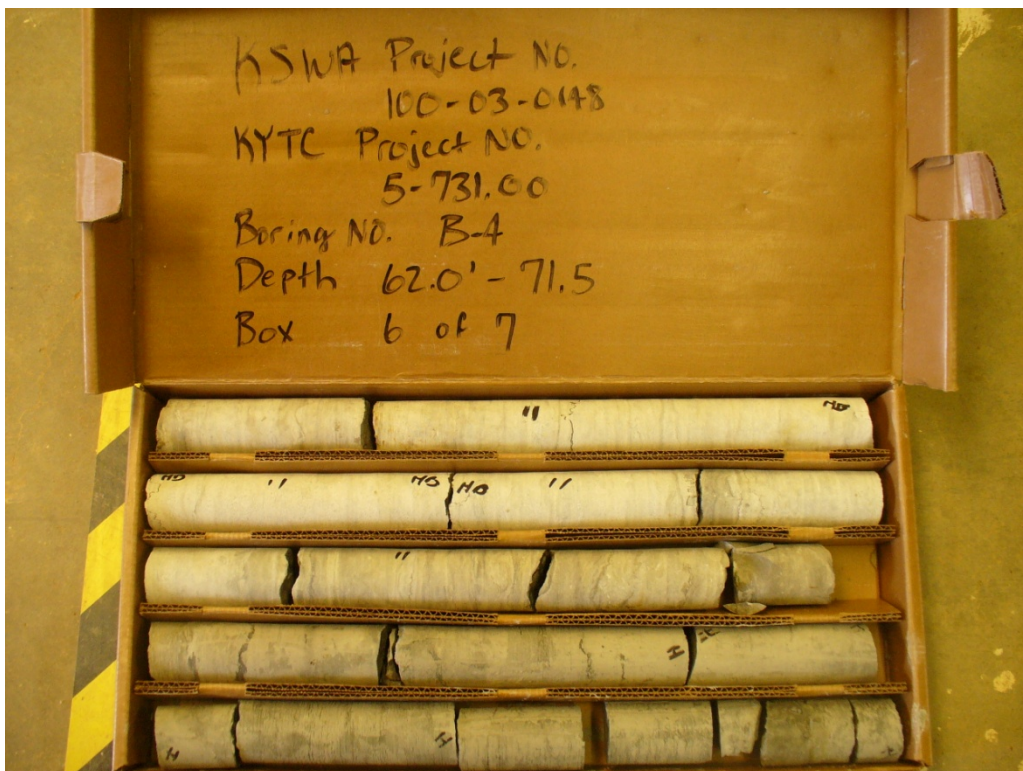 KSWA Project No.
100-03-0148
KYTC Project No.
5-731.00
Boring No. B-4
Depth 62.0' - 71.5
Box 6 of 7
"
MB
" MB MB "
"
H
H H